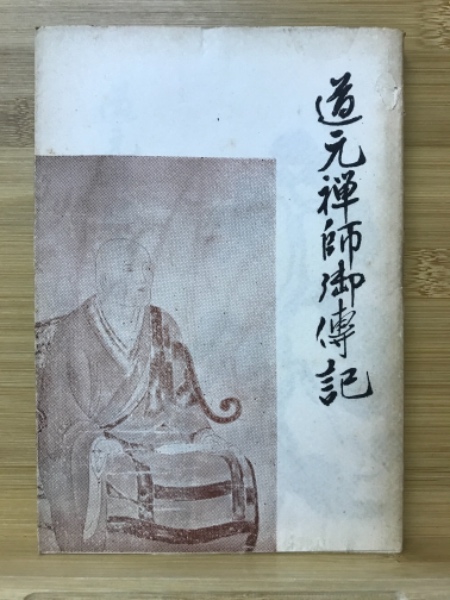 道元禅師御傳記